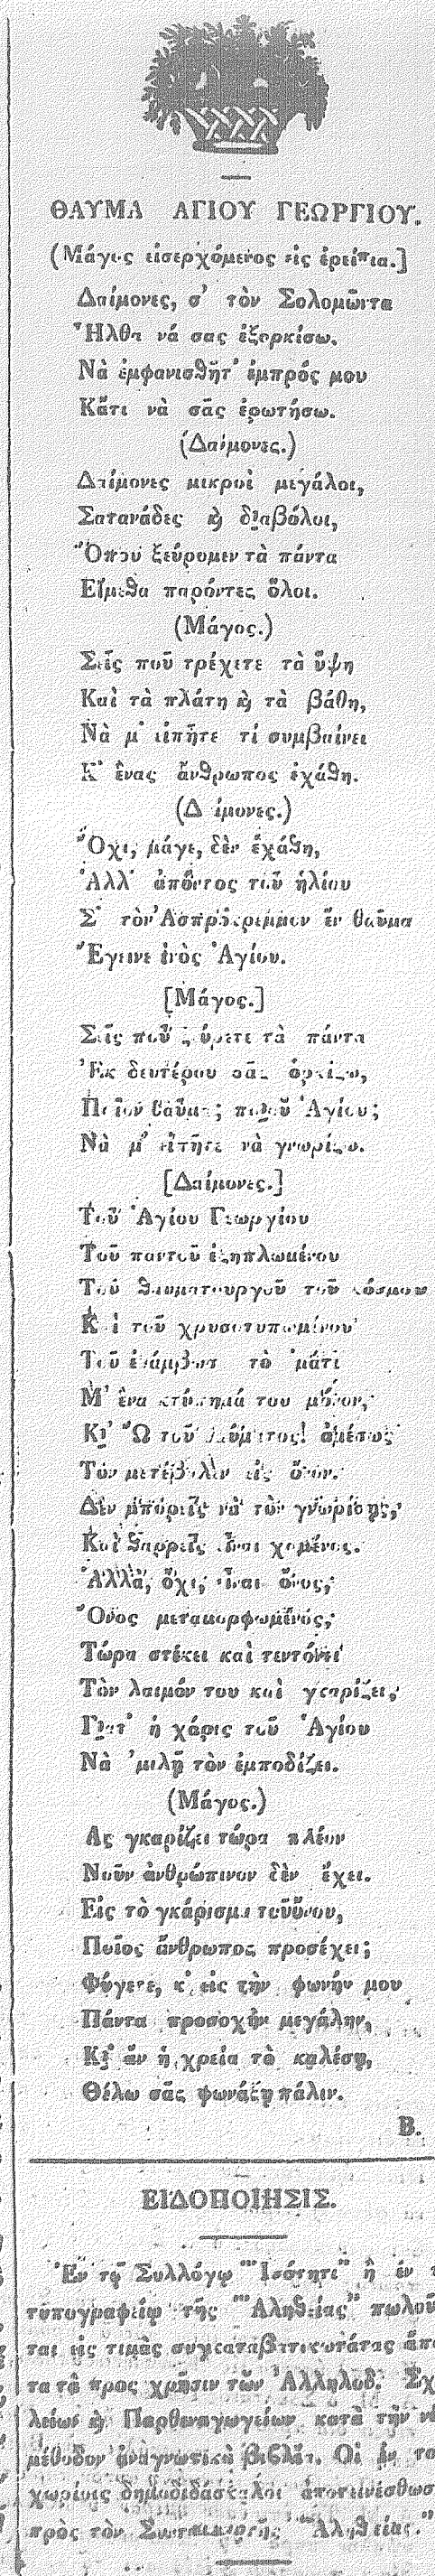 ΘΑΥΜΑ ΑΓΙΟΥ ΓΕΩΡΓΙΟΥ.
(Μάγος εἰσερχόμενος εἰς ἐρείπια.]
Δαίμονες, σ’ τὸν Σολομῶντα
Ἦλθα νά σας ἐξορκίσω.
Νὰ ἐμφανισθῆτ’ ἐμπρός μου
Κᾶτι νὰ σᾶς ἐρωτήσω.
(Δαίμονες.)
Δαίμονες μικροὶ μεγάλοι,
Σατανάδες ϗ διαβόλοι,
Ὅπου ξεύρομεν τὰ πάντα
Εἴμεθα παρόντες ὅλοι.
(Μάγος.)
Σεῖς ποῦ τρέχετε τὰ ὕψη
Καὶ τὰ πλάτη ϗ τὰ βάθη,
Νὰ μ’ εἰπῆτε τί συμβαίνει
Κ’ ἕνας ἄνθρωπος ἐχάθη.
(Δαίμονες.)
Ὄχι, μάγε, δὲν ἐχάθη,
Ἀλλ’ ἀπόντος τοῦ ἡλίου
Σ’ τὸν Ἀσπρόκρεμμον ἓν θαῦμα
Ἔγεινε ἑνὸς Ἁγίου.
[Μάγος.]
Σεῖς ποῦ ξεύρετε τὰ πάντα
Ἐκ δευτέρου σᾶς ὁρκίζω,
Ποῖον θαῦμα; ποιοῦ Ἁγίου;
Νὰ μ’ εἰπῆτε νὰ γνωρίζω.
[Δαίμονες.]
Τοῦ Ἁγίου Γεωργίου
Τοῦ παντοῦ ἐξηπλωμένου
Τοῦ θαυματουργοῦ τοῦ κόσμου
Καὶ τοῦ χρυσοτυπωμένου
Τοῦ ἐθάμβωσε τὸ ’μάτι
Μ’ ἕνα κτύπημά του μόνον,
Κι’ Ὢ τοῦ θαύματος! ἀμέσως
Τὸν μετέβαλεν εἰς ὄνον.
Δὲν μπορεῖς νὰ τὸν γνωρίσῃς,
Καὶ θαρρεῖς εἶναι χαμένος.
Ἀλλὰ, ὄχι, εἶναι ὄνος,
Ὄνος μεταμορφωμένος,
Τώρα στέκει καὶ τεντόνει
Τὸν λαιμόν του καὶ γκαρίζει,
Γιατ’ ἡ χάρις τοῦ Ἁγίου
Νὰ ’μιλῇ τὸν ἐμποδίζει.
(Μάγος.)
Ας γκαρίζει τώρα πλέον
Νοῦν ἀνθρώπινον δὲν ἔχει.
Εἰς τὸ γκάρισμα τοῦ ὄνου,
Ποῖος ἄνθρωπος προσέχει;
Φύγετε, κ’ εἰς τὴν φωνήν μου
Πάντα προσοχὴν μεγάλην,
Κι’ ἂν ἡ χρεία τὸ καλέσῃ,
Θέλω σᾶς φωνάξῃ πάλιν.
Β.
ΕΙΔΟΠΟΙΗΣΙΣ.
Ἐν τῷ Συλλόγῳ “Ἰσότητι” ἢ ἐν τ
τυπογραφείῳ τῆς “Ἀληθείας” πωλοῦ
ται εἰς τιμὰς συγκαταβατικωτάτας ἅπα
τα τὰ προς χρῆσιν τῶν Ἀλληλοδ. Σχ
λείων ϗ Παρθεναγωγείων κατὰ τὴν νέ
μέθοδον ἀναγνωτικὰ βιβλία. Οἱ ἐν το
χωρίοις δημοδιδάσκαλοι ἀποτεινέσθωσ
πρὸς τὸν Συντάκτην τῆς “Ἀληθείας.”